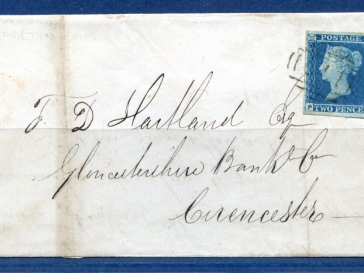 POSTAGE
TWO PENCE
F. D Hartland Esq
Gloucestershire Bank Co
Cirencester